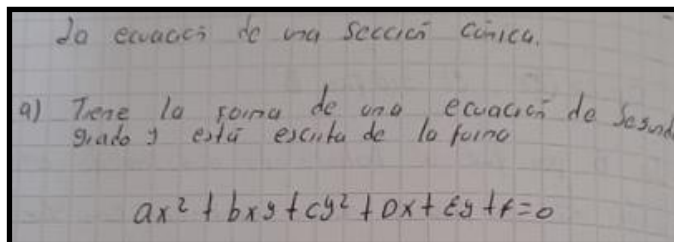 La ecuación de una sección cónica.
a) Tiene la forma de una ecuación de Segund
grado y está escrita de la forma
ax² + bxy + cy² + Dx + Ey + F = 0